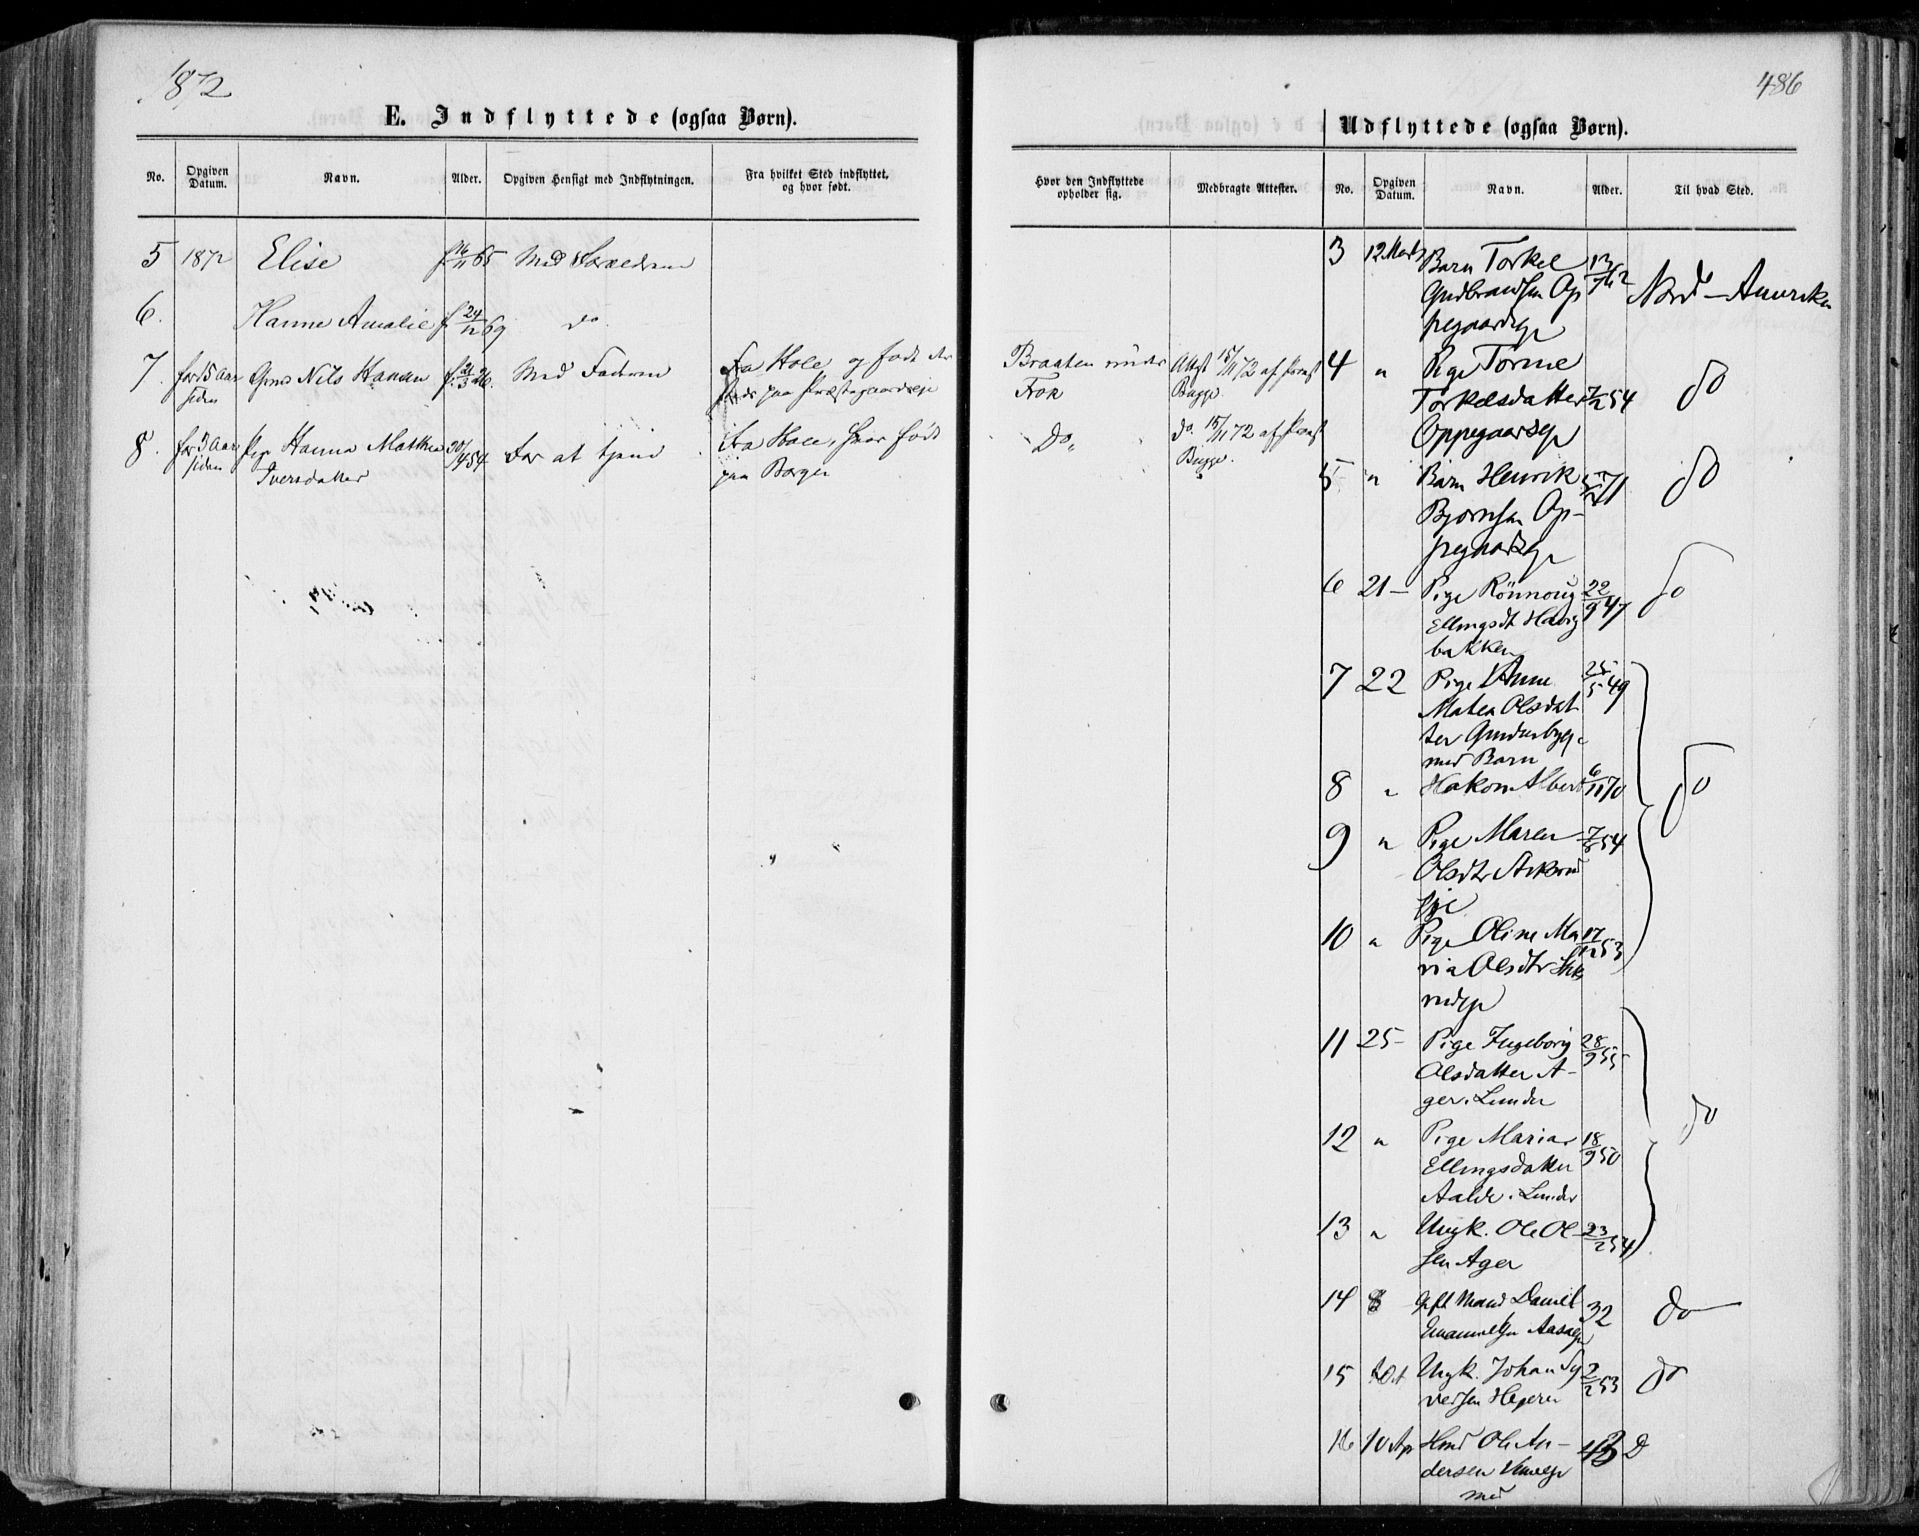 1872
486
E. Indflyttede (ogsaa Børn).
No. Opgiven Datum. Navn. Alder. Opgiven Hensigt med Indflytningen. Fra hvilket Sted indflyttet, og hvor født.
5 1872 Elise f. 16/11 65 Med Forældrene
6. Hanne Amalie f. 24/12 69 do
7. for 15 Aar Nils Hansen f. 21/3 Med Faderen Fra Hole og født der
siden paa Præstegaardseje
8. for 3 Aar Pige Hanna Mathea 30/4 54 For at tjene Fra Hole, født
siden Iversdatter paa Borgen
Hvor den Indflyttede opholder sig. Medbragte Attester.
Braaten under Attest 15/11 72 af Provst
Frok Bugge.
Do, do. 15/11 72 af Provst
Bugge.
Udflyttede (ogsaa Børn).
No. Opgiven Datum. Navn. Alder. Til hvad Sted.
3 12 Marts Barn Torkel 13/7 62 Nord-Amerika
Gudbrandsen Op
pegaardseje
4 " Pige Torine do
Torkelsdatter 7/2 54
Oppegaardseje
5 " Barn Henrik 71 do
Bjørnsen Op-
pegaardseje
6 21 – Pige Rönnoug 22/9 47 do
Ellingsdt Haug
bakken
7 22 Pige Anne 25/5 49
Matea Olsdat
ter
med Barn
8 " Hakon Albert 6/11 70 do
9 " Pige Maren 54
Olsdtr Askerud
eje
10 " Pige Oline Ma 17/12 53
ria Olsdtr Aske
rudeje
11 25 – Pige Ingeborg 28/9 55
Olsdatter A-
ger. Lunder
12 " Pige Maria 18/9 50 do
Ellingsdatter
Lunder
13 " Ungk. Ole Ol 23/2 54
sen Ager
14 8 gift Mand Daniel 32 do
Emanuelsen
15 Ungk. Johan Sy 2/2 53 do
versen Hegeren
16 10 Ap Ole An-
dersen
med